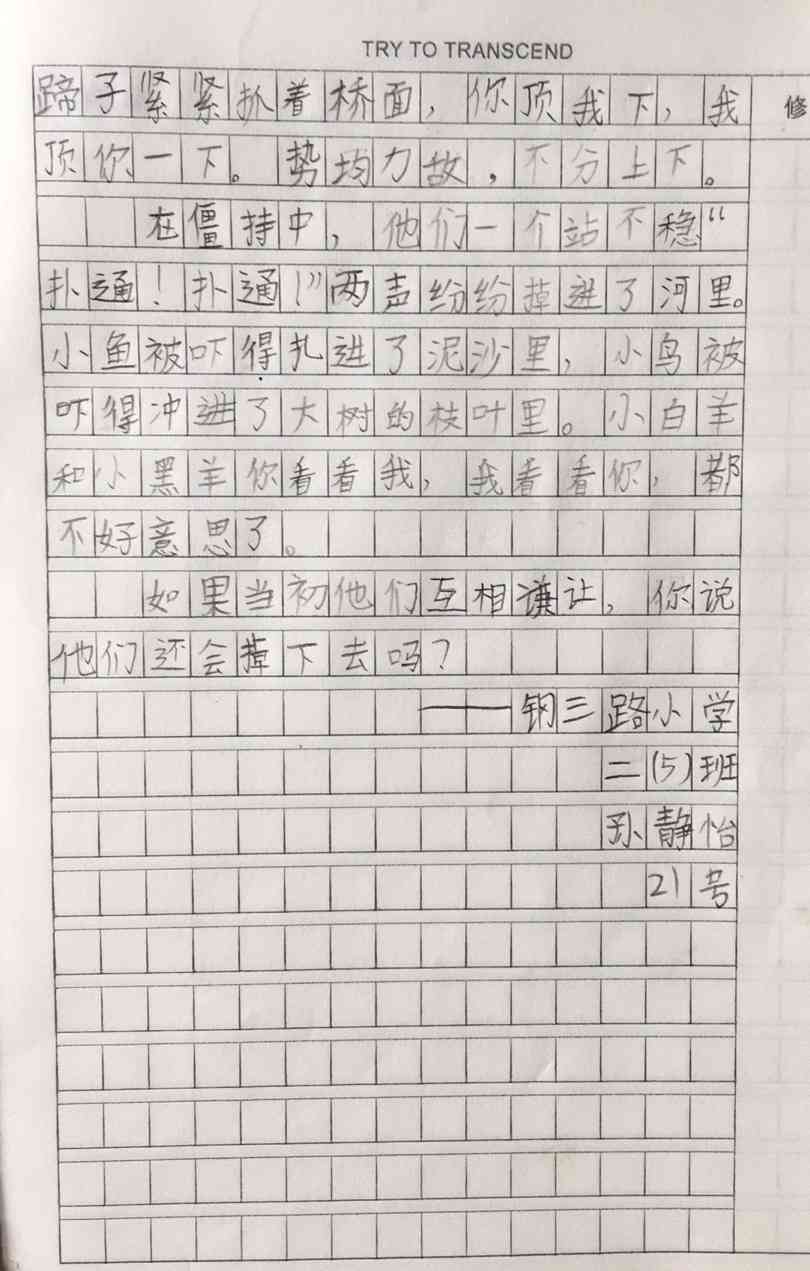 TRY TO TRANSCEND
蹄子紧紧扒着桥面，你顶我下，我
修
顶你一下。势均力故，不分上下。
在僵持中，他们一个站不稳“
扑通！扑通！”两声纷纷掉进了河里。
小鱼被吓得扎进了泥沙里，小鸟被
吓得冲进了大树的枝叶里。小白羊
和小黑羊你看看我，我看看你，都
不好意思了。
如果当初他们互相谦让，你说
他们还会掉下去吗？
——钢三路小学
二(5)班
孙静怡
21号